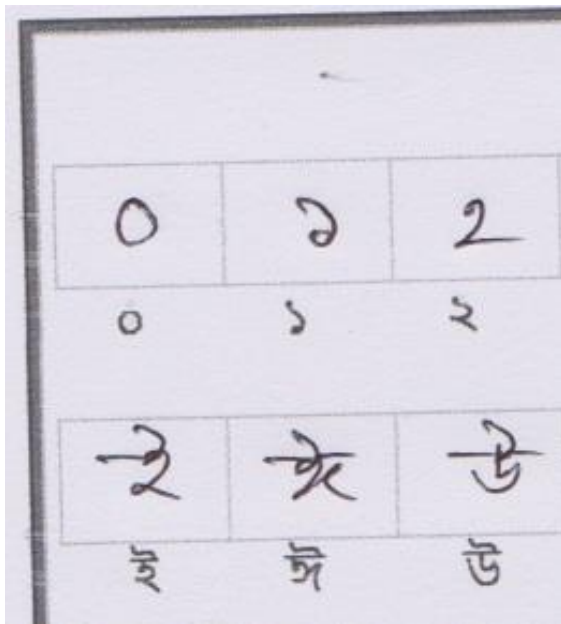 ০ ১ ২
০ ১ ২
ই ঈ উ
ই ঈ উ